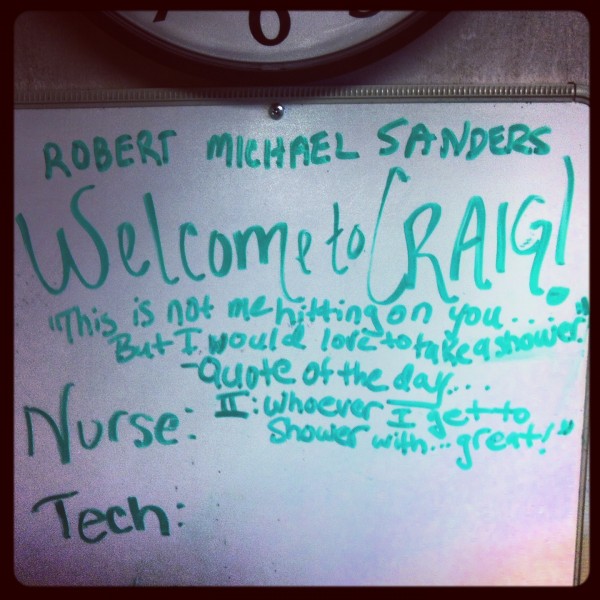 6
ROBERT MICHAEL SANDERS
Welcome to CRAIG!
"This is not me hitting on you....
But I would love to take a shower."
-Quote of the day....
Nurse: II: whoever I get to
shower with... great!"
Tech: